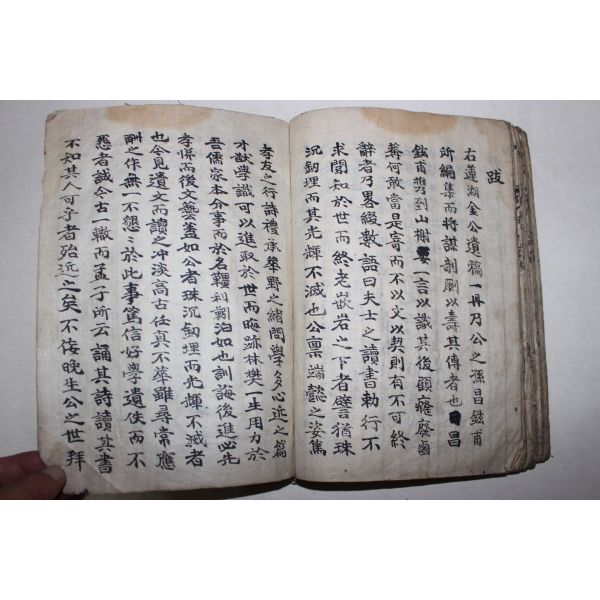 跋
右蓮湖金公遺稿一冊乃公之孫昌鉉甫
所編集而將謀剞劂以壽其傳者也昌
鉉甫携到山榭要一言以識其後顧癃廢鹵
莽何敢當是寄而不以文以契則有不可終
辭者乃畧綴數語曰夫士之讀書勅行不
求聞知於世而終老嵌岩之下者譬猶珠
沉釰埋而其光輝不滅也公禀端懿之姿篤
孝友之行詩禮承華野之緒問學多心近之篇
才猷學識可以進取於世而晦跡林樊一生用力於
吾儒家本分事而於名韁利鞘泊如也訓誨後進必先
孝悌而後文藝盖如公者珠沉釰埋而光輝不滅者
也今見遺文而讀之冲淡高古任真不華雖尋常應
酬之作無一不懇懇於此事篤信好學遺佚而不
怨者誠今古一轍而孟子所云誦其詩讀其書
不知其人可乎者殆近之矣不佞晚生公之世拜